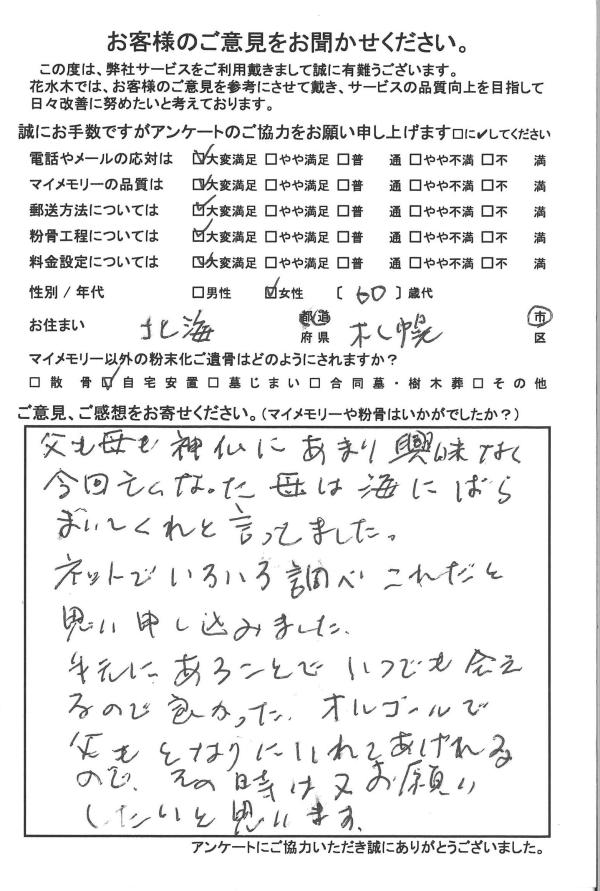 お客様のご意見をお聞かせください。
この度は、弊社サービスをご利用戴きまして誠に有難うございます。
花水木では、お客様のご意見を参考にさせて戴き、サービスの品質向上を目指して
日々改善に努めたいと考えております。
誠にお手数ですがアンケートのご協力をお願い申し上げます□に✔してください
電話やメールの応対は ☑大変満足 □やや満足 □普 通 □やや不満 □不 満
マイメモリーの品質は ☑大変満足 □やや満足 □普 通 □やや不満 □不 満
郵送方法については ☑大変満足 □やや満足 □普 通 □やや不満 □不 満
粉骨工程については ☑大変満足 □やや満足 □普 通 □やや不満 □不 満
料金設定については ☑大変満足 □やや満足 □普 通 □やや不満 □不 満
性別 / 年代 □男性 ☑女性 〔 60 〕歳代
お住まい 北海 都道府県 札幌 市区
マイメモリー以外の粉末化ご遺骨はどのようにされますか?
□散 骨 ☑自宅安置 □墓じまい □合同墓・樹木葬 □その他
ご意見、ご感想をお寄せください。(マイメモリーや粉骨はいかがでしたか?)
父も母も神仏にあまり興味なく
今回亡くなった母は海にばら
まいてくれと言ってました。
ネットでいろいろ調べこれだと
思い申し込みました。
手元にあることでいつでも会え
るので良かった。オルゴールで
父もとなりにいれてあげれる
ので、その時は又お願い
したいと思います。
アンケートにご協力いただき誠にありがとうございました。